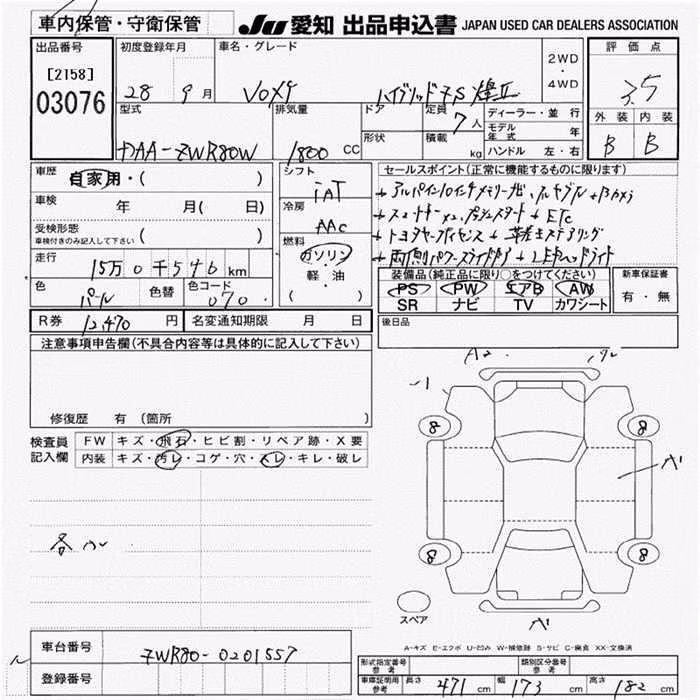 車内保管・守衛保管
JU 愛知 出品申込書 JAPAN USED CAR DEALERS ASSOCIATION
出品番号 初度登録年月 車名・グレード 2WD・4WD 評価点
[2158]
03076
28 9月 VOXY ハイブリッドZS 煌Ⅱ 3.5
型式 排気量 ドア 定員 7人 ディーラー・並行 外装 内装
形状 積載 kg モデル年式 年 B B
DAA-ZWR80W 1800 CC ハンドル 左・右
車歴 自家用・( ) シフト セールスポイント(正常に機能するものに限ります)
車検 年 月( 日) iAT
受検形態 車検付きのみ記入して下さい ( ) 冷房 AAC
→スマートキー×2、プッシュスタート →ETC
燃料 ガソリン・軽油 ( )
走行 15万0千546km
→両側パワースライドドア →LEDヘッドライト
色 パール 色替 色コード 070
装備品(純正品に限り○をつけてください) 新車保証書
PS PW エアB AW 有・無
SR ナビ TV カワシート
R券 12,470 円 名変通知期限 月 日 後日品
注意事項申告欄(不具合内容等は具体的に記入して下さい)
修復歴 有 (箇所 )
検査員記入欄 FW キズ・飛石・ヒビ割・リペア跡・X要
内装 キズ・汚レ・コゲ・穴・スレ・キレ・破レ
8 8
8 8
スペア
A-キズ E-エクボ U-凹み W-補修跡 S-サビ C-腐食 XX-交換済
車台番号 ZWR80-0201557
登録番号
形式指定番号 参考 類別区分番号 参考
車庫証明用 参考 長さ 471 cm 幅 173 cm 高さ 182 cm